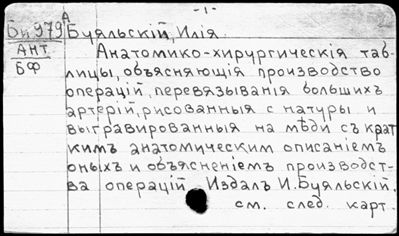 -1-
А
Би 979 Буяльскій, Илія.
АНТ. Анатомико-хирургическія таб-
БФ лицы, объясняющія производство
операцій перевязыванія большихъ
артерій, рисованныя с натуры и
выгравированныя на мѣди съ крат
кимъ анатомическим описаніем
оныхъ и объясненіемъ производст-
ва операцій. Издалъ И. Буяльскій.
см. след. карт.